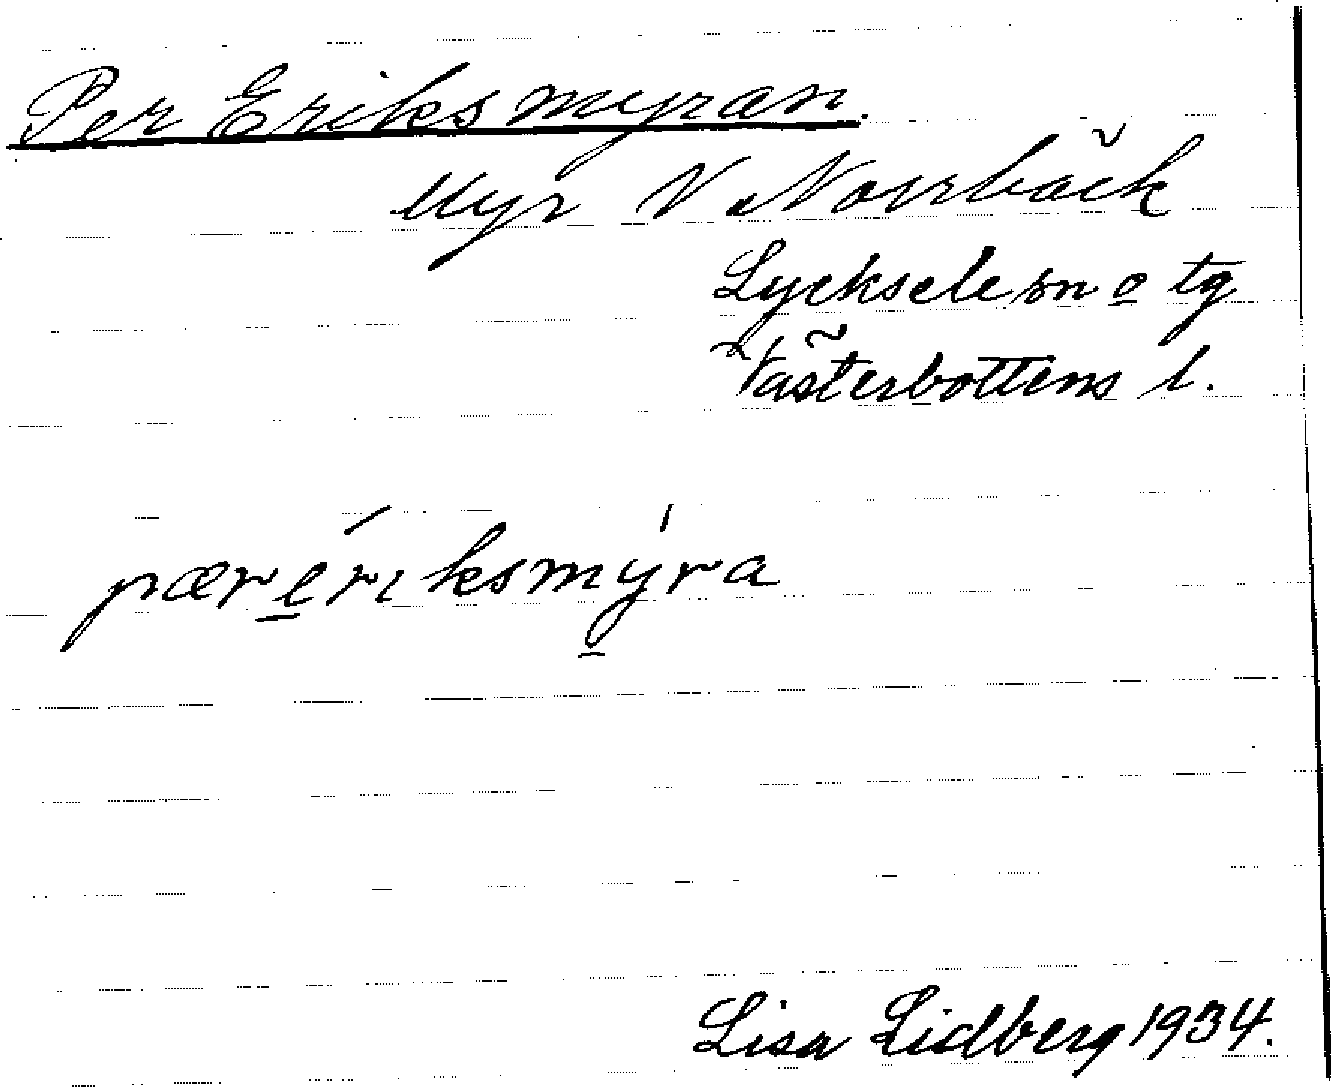 Per Eriksmyran.
Myr V Norrbäck
Lycksele sn o tg
Västerbottens l.
pæreriksmyra
Lisa Lidberg 1934.